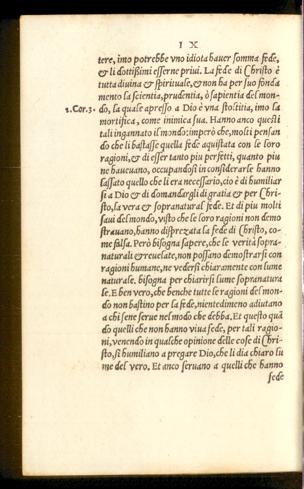 I X
tere, imo potrebbe vno idiota hauer somma fede,
& li dottißimi esserne priui. La fede di Christo è
tutta diuina & spirituale, & non ha per suo fonda
mento la scientia, prudentia, ò sapientia del mon-
1.Cor.3. do, la quale apresso a Dio è vna stoltitia, imo la
mortifica, come inimica sua. Hanno anco questi
tali ingannato il mondo: imperò che, molti pensan
do che li bastasse quella fede aquistata con le loro
ragioni, & di esser tanto piu perfetti, quanto piu
ne haueuano, occupandosi in considerarle hanno
lassato quello che li era necessario, cio è di humiliar
si a Dio & di domandargli di gratia & per Chri-
sto, la vera & sopranatural fede. Et di piu molti
saui del mondo, visto che le loro ragioni non demo
strauano, hanno disprezata la fede di Christo, co-
me falsa. Però bisogna sapere, che le verità sopra-
naturali & reuelate, non possano demostrarsi con
ragioni humane, ne vedersi chiaramente con lume
naturale. bisogna per chiarirsi lume sopranatura
le. E ben vero, che benche tutte le ragioni del mon-
do non bastino per la fede, nientedimeno adiutano
a chi sene serue nel modo che debba, Et questo quā
do quelli che non hanno viua fede, per tali ragio-
ni, venendo in qualche opinione delle cose di Chri-
sto, si humiliano a pregare Dio, che li dia chiaro lu
me del vero. Et anco seruano a quelli che hanno
fede